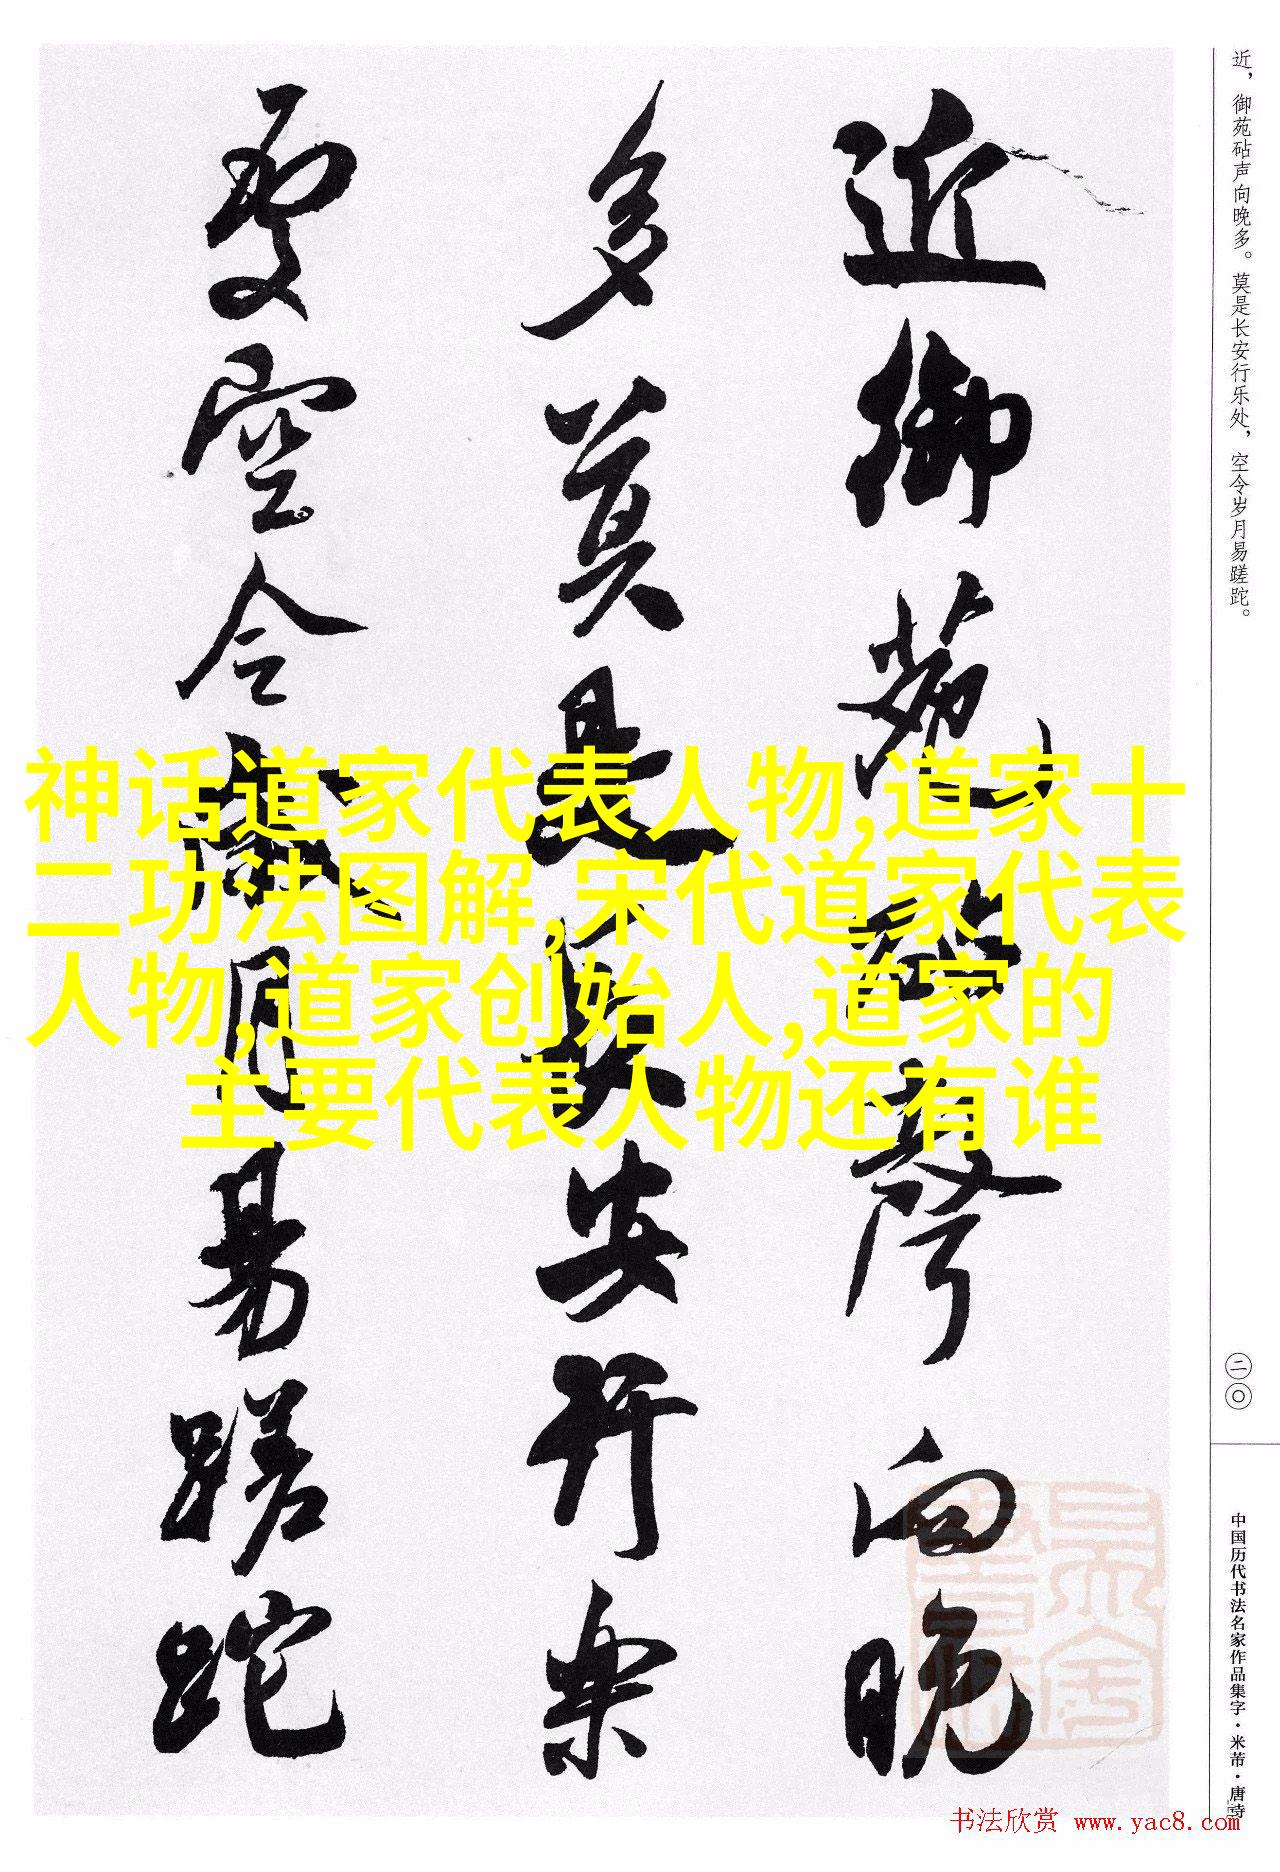 近，御苑砧声向晚多。莫是长安行乐处，空令岁月易蹉跎。
近御苑砧聲向晚
多莫是長安行樂
處空令歲月易蹉跎
神话道家代表人物,道家十
二功法图解,宋代道家代表
人物,道家创始人,道家的
主要代表人物还有谁
二〇
中国历代书法名家作品集字·米芾·唐诗
书法欣赏 www.yac8.com